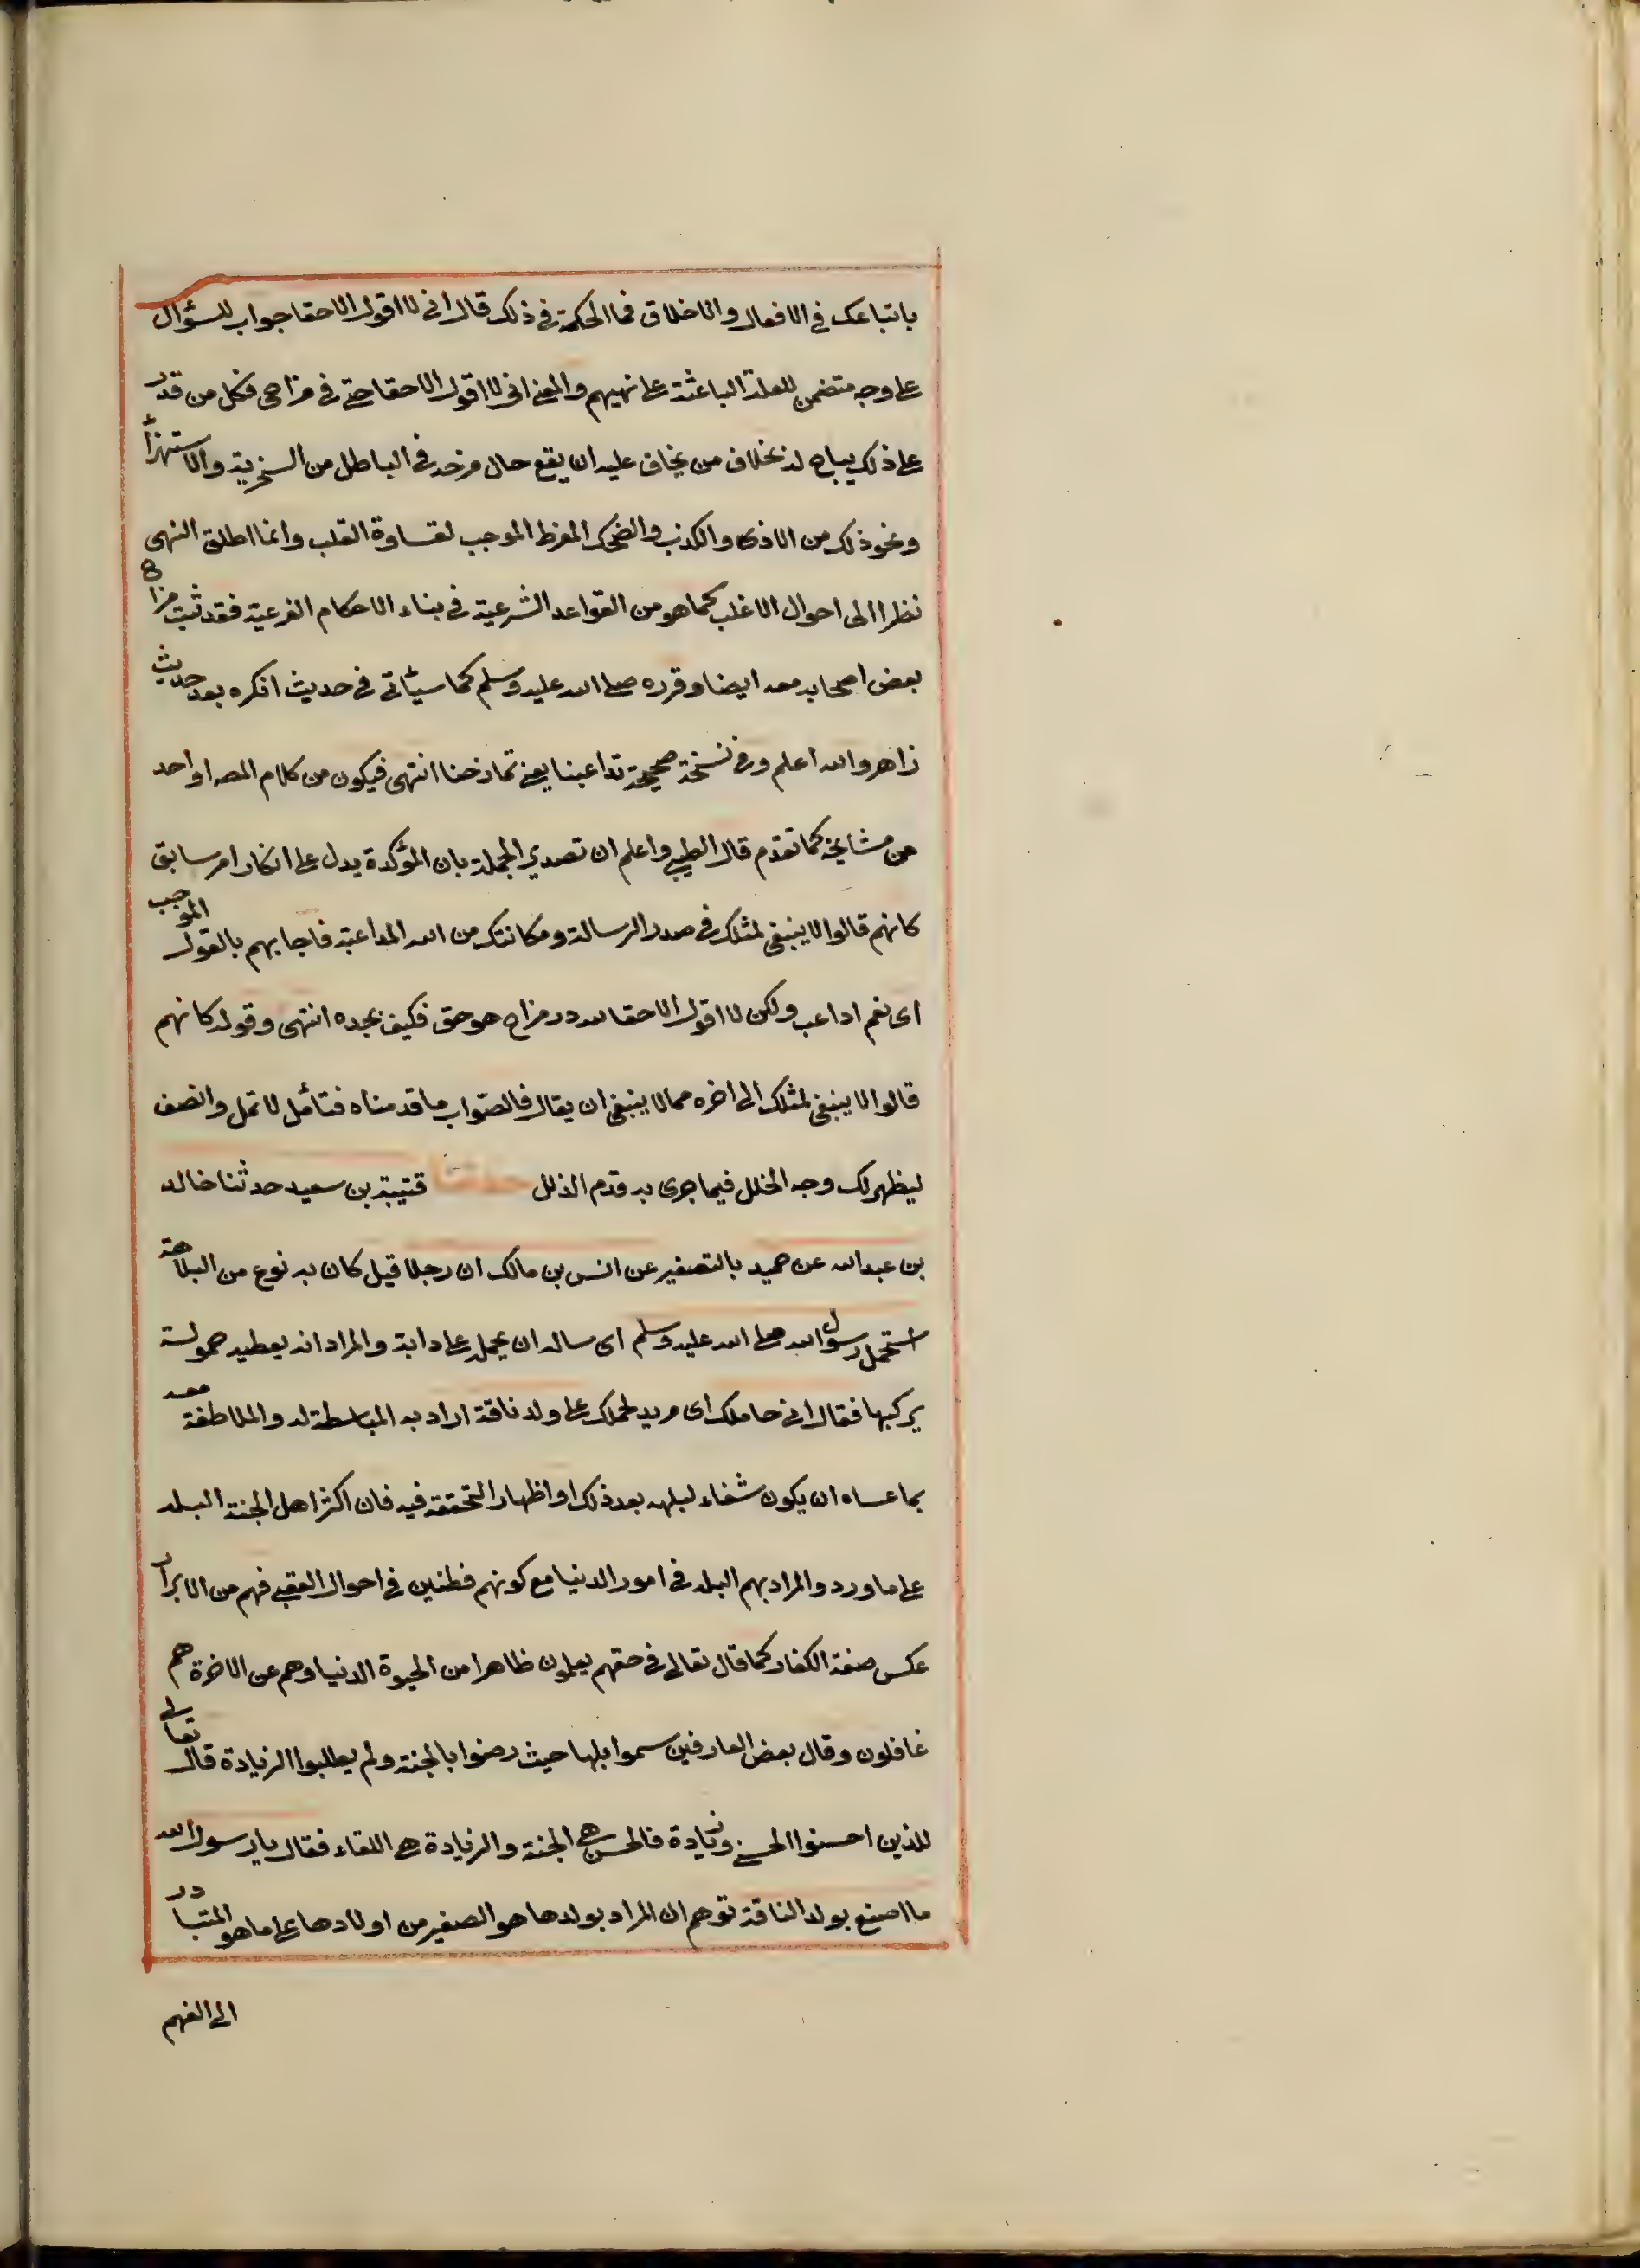 باتباعك في الافعال والاخلاق فما الحكمة في ذلك قال اني لا اقول الا حقا جواب للسؤال
على وجه متضمن للعلة الباعثة على نهيهم والمعنى اني لا اقول الا حقا حتى في مزاحي فكل من قدر
على ذلك يباح له بخلاف من يخاف عليه ان يقع حال مزحه في الباطل من السخرية والاستهزأ
ونحو ذلك من الاذى والكذب والضحك المفرط الموجب لقساوة القلب وانما اطلق النهي
نظرا الى احوال الاغلب كما هو من القواعد الشرعية في بناء الاحكام الفرعية فقد ثبت مزاح
بعض اصحابه معه ايضا وقرره صلى الله عليه وسلم كما سيأتي في حديث اذكره بعد حديث
زاهر والله اعلم وفي نسخة صحيحة تداعبنا يعني تمازحنا انتهى فيكون من كلام المصـ او احد
من مشايخه كما تقدم قال الطيبي واعلم ان تصدير الجملة بان المؤكدة يدل على انكار امر سابق
كانهم قالوا لا ينبغي لمثلك في صدر الرسالة ومكانتك من الله المداعبة فاجابهم بالقول الموجب
اى نعم اداعب ولكن لا اقول الا حقا لله در مزاح هو حق فكيف بجده انتهى وقوله كانهم
قالوا لا ينبغي لمثلك الى اخره مما لا ينبغي ان يقال فالصّواب ما قدمناه فتأمّل لا تمل وانصف
ليظهر لك وجه الخلل فيما جرى به قدم الذلل حدثنا قتيبة بن سعيد حدثنا خالد
بن عبد الله عن حميد بالتصغير عن انس بن مالك ان رجلا قيل كان به نوع من البلاهة
استحمل رسول الله صلى الله عليه وسلم اى ساله ان يحمله على دابة والمراد انه يعطيه حمولة
يركبها فقال اني حاملك اى مريد لحملك على ولد ناقة اراد به المباسطة له والملاطفة معه
بما عساه ان يكون شفاء لبلهه بعد ذلك او اظهار التحققه فيه فان اكثر اهل الجنة البله
على ما ورد والمراد بهم البله في امور الدنيا مع كونهم فطنين في احوال العقبى فهم من الابرار
عكس صفة الكفار كما قال تعالى في حقهم يعلمون ظاهرا من الحيوة الدنيا وهم عن الاخرة هم
غافلون وقال بعض العارفين سموا بلها حيث رضوا بالجنة ولم يطلبوا الزيادة قال تعالى
للذين احسنوا الحسنى وزيادة فالحسنى هي الجنة والزيادة هي اللقاء فقال يا رسول الله
ما اصنع بولد الناقة توهم ان المراد بولدها هو الصغير من اولادها على ما هو المتبادر
الى الفهم